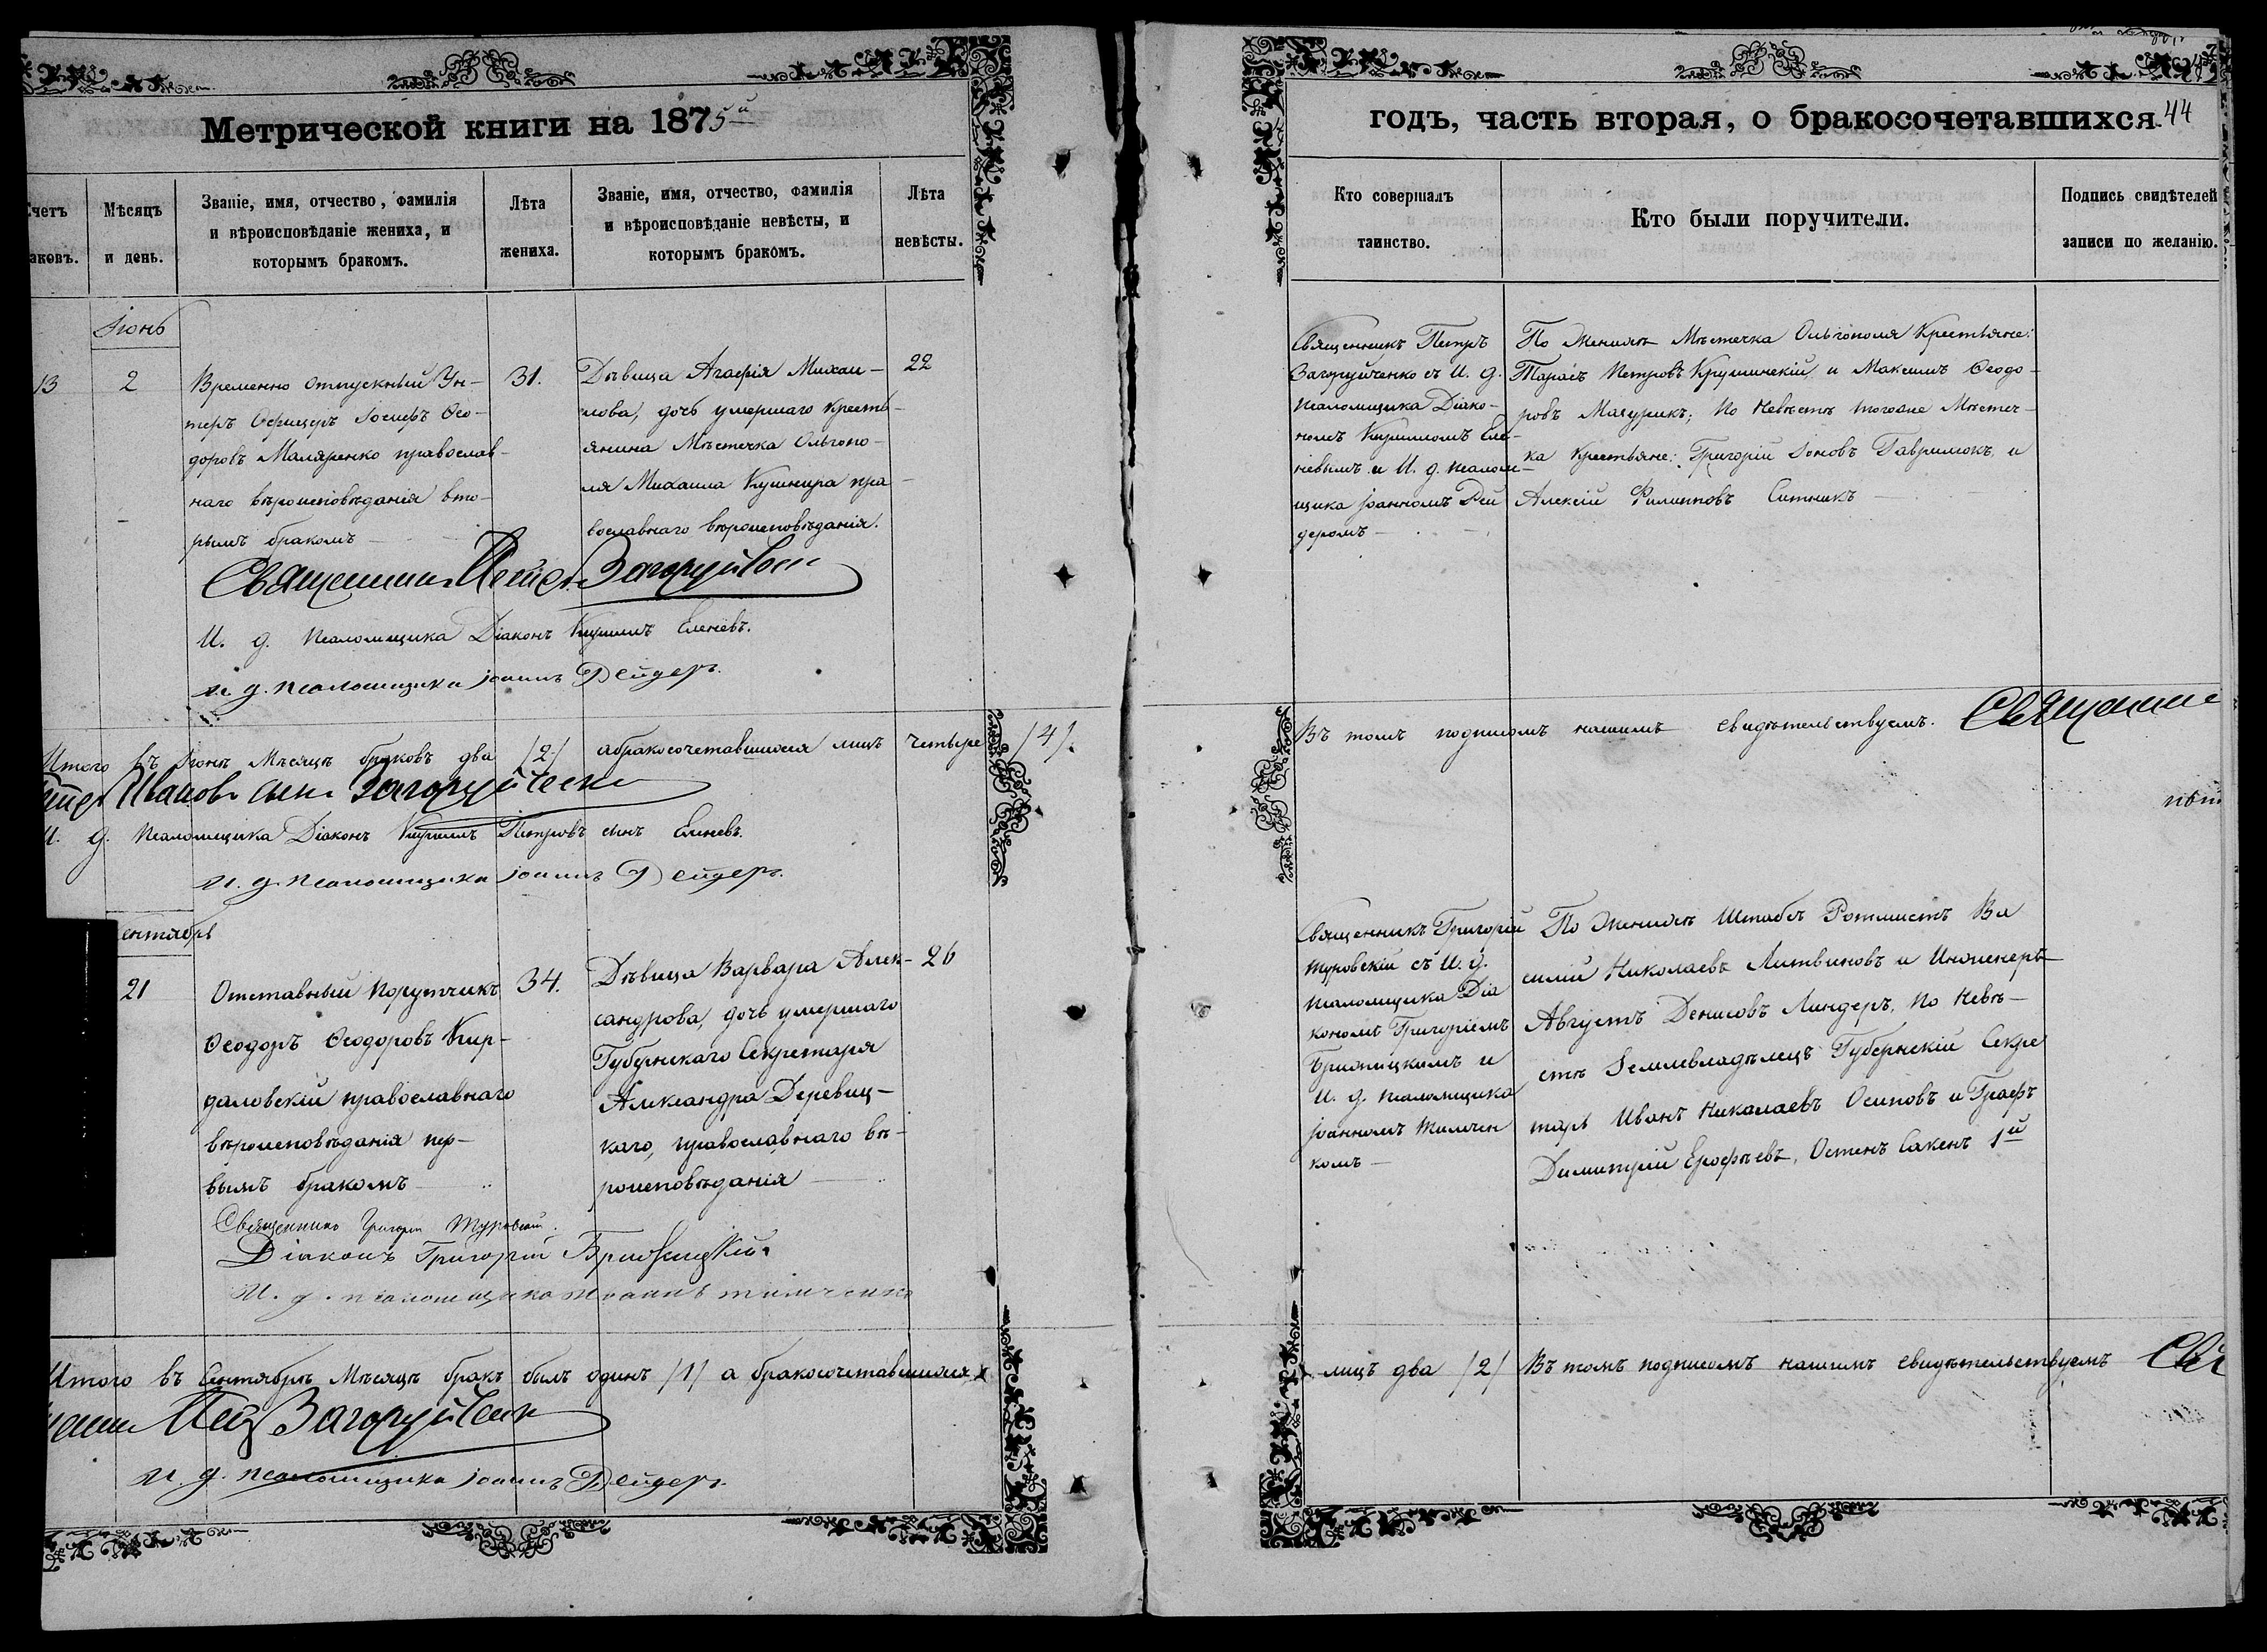 Метрической книги на 1875й
годъ, часть вторая, о бракосочетавшихся
44
счетъ
аковъ.
Мѣсяцъ
и день.
Званіе, имя, отчество, фамилія
и вѣроисповѣданіе жениха, и
которымъ бракомъ.
Лѣта
жениха.
Званіе, имя, отчество, фамилія
и вѣроисповѣданіе невѣсты, и
которымъ бракомъ.
Лѣта
невѣсты.
Кто совершалъ
таинство.
Кто были поручители.
Подпись свидѣтелей
записи по желанію.
Іюнь
13
2
Временно отпускный Ун-
теръ Офицеръ Іосифъ Ѳео-
доровъ Маляренко православ-
наго вѣроисповѣданія вто-
рымъ бракомъ
31.
Дѣвица Агафія Михаи-
лова, дочь умершаго Кресть-
янина Мѣстечка Ольгопо-
ля Михаила Кушнира пра-
вославнаго вѣроисповѣданія.
22
Священникъ Петръ
Загоруйченко съ И. д.
Псаломщика Діако-
номъ Кирилломъ Еле-
невымъ и И. д. псалом-
щика Іоанномъ Дей
деромъ
По Женихѣ Мѣстечка Ольгополя Крестьяне:
Тарасъ Петровъ Крушинскій и Максимъ Ѳеодо-
ровъ Мазурикъ; По Невѣстѣ тогоже Мѣстеч-
ка Крестьяне: Григорій Іоновъ Гаврилюкъ и
Алексій Филипповъ Ситникъ
Священникъ Петръ Загоруйченко
И. д. Псаломщика Діаконъ Кириллъ Еленевъ.
И. д. псаломщика Іоаннъ Дейдеръ.
Итого въ Іюнѣ Мѣсяцѣ браковъ два /2/ а бракосочетавшихся лицъ четыре /4/.
Въ томъ подписомъ нашимъ свидѣтельствуемъ. Священни
Петръ Ивановъ сынъ Загоруйченко
И. д. Псаломщика Діаконъ Кириллъ Петровъ сынъ Еленевъ.
И. д. псаломщика Іоаннъ Дейдеръ.
ентябрь
21
Отставный Порутчикъ
Ѳеодоръ Ѳеодоровъ Кир-
даловскій православнаго
вѣроисповѣданія пер-
вымъ бракомъ
34.
Дѣвица Варвара Алек-
сандрова, дочь умершаго
Губернскаго Секретаря
Александра Деревиц-
каго, православнаго вѣ-
роисповѣданія
26
Священникъ Григорій
Туровскій съ И. д.
псаломщика Діа
кономъ Григоріемъ
И. д. псаломщика
Іоанномъ Тимчен
комъ
По Женихѣ Штабсъ Ротмистъ Ва
силій Николаевъ Литвиновъ и Инженеръ
Августъ Денисовъ Линдеръ, По Невѣ-
стѣ Землевладѣлецъ Губернскій Секре
тарь Иванъ Николаевъ Осиповъ и Графъ
Димитрій Ерофѣевъ, Остенъ Сакенъ 1й
Священникъ Григорій Туровскій.
Діаконъ Григорій
И. д. псаломщика Іоаннъ Тимченко
Итого въ Сентябрѣ Мѣсяцѣ бракъ былъ одинъ /1/ а бракосочетавшихся
лицъ два /2/ Въ томъ подписомъ нашимъ свидѣтельствуемъ Свя
Петръ Загоруйченко
И. д. псаломщика Іоаннъ Дейдеръ.